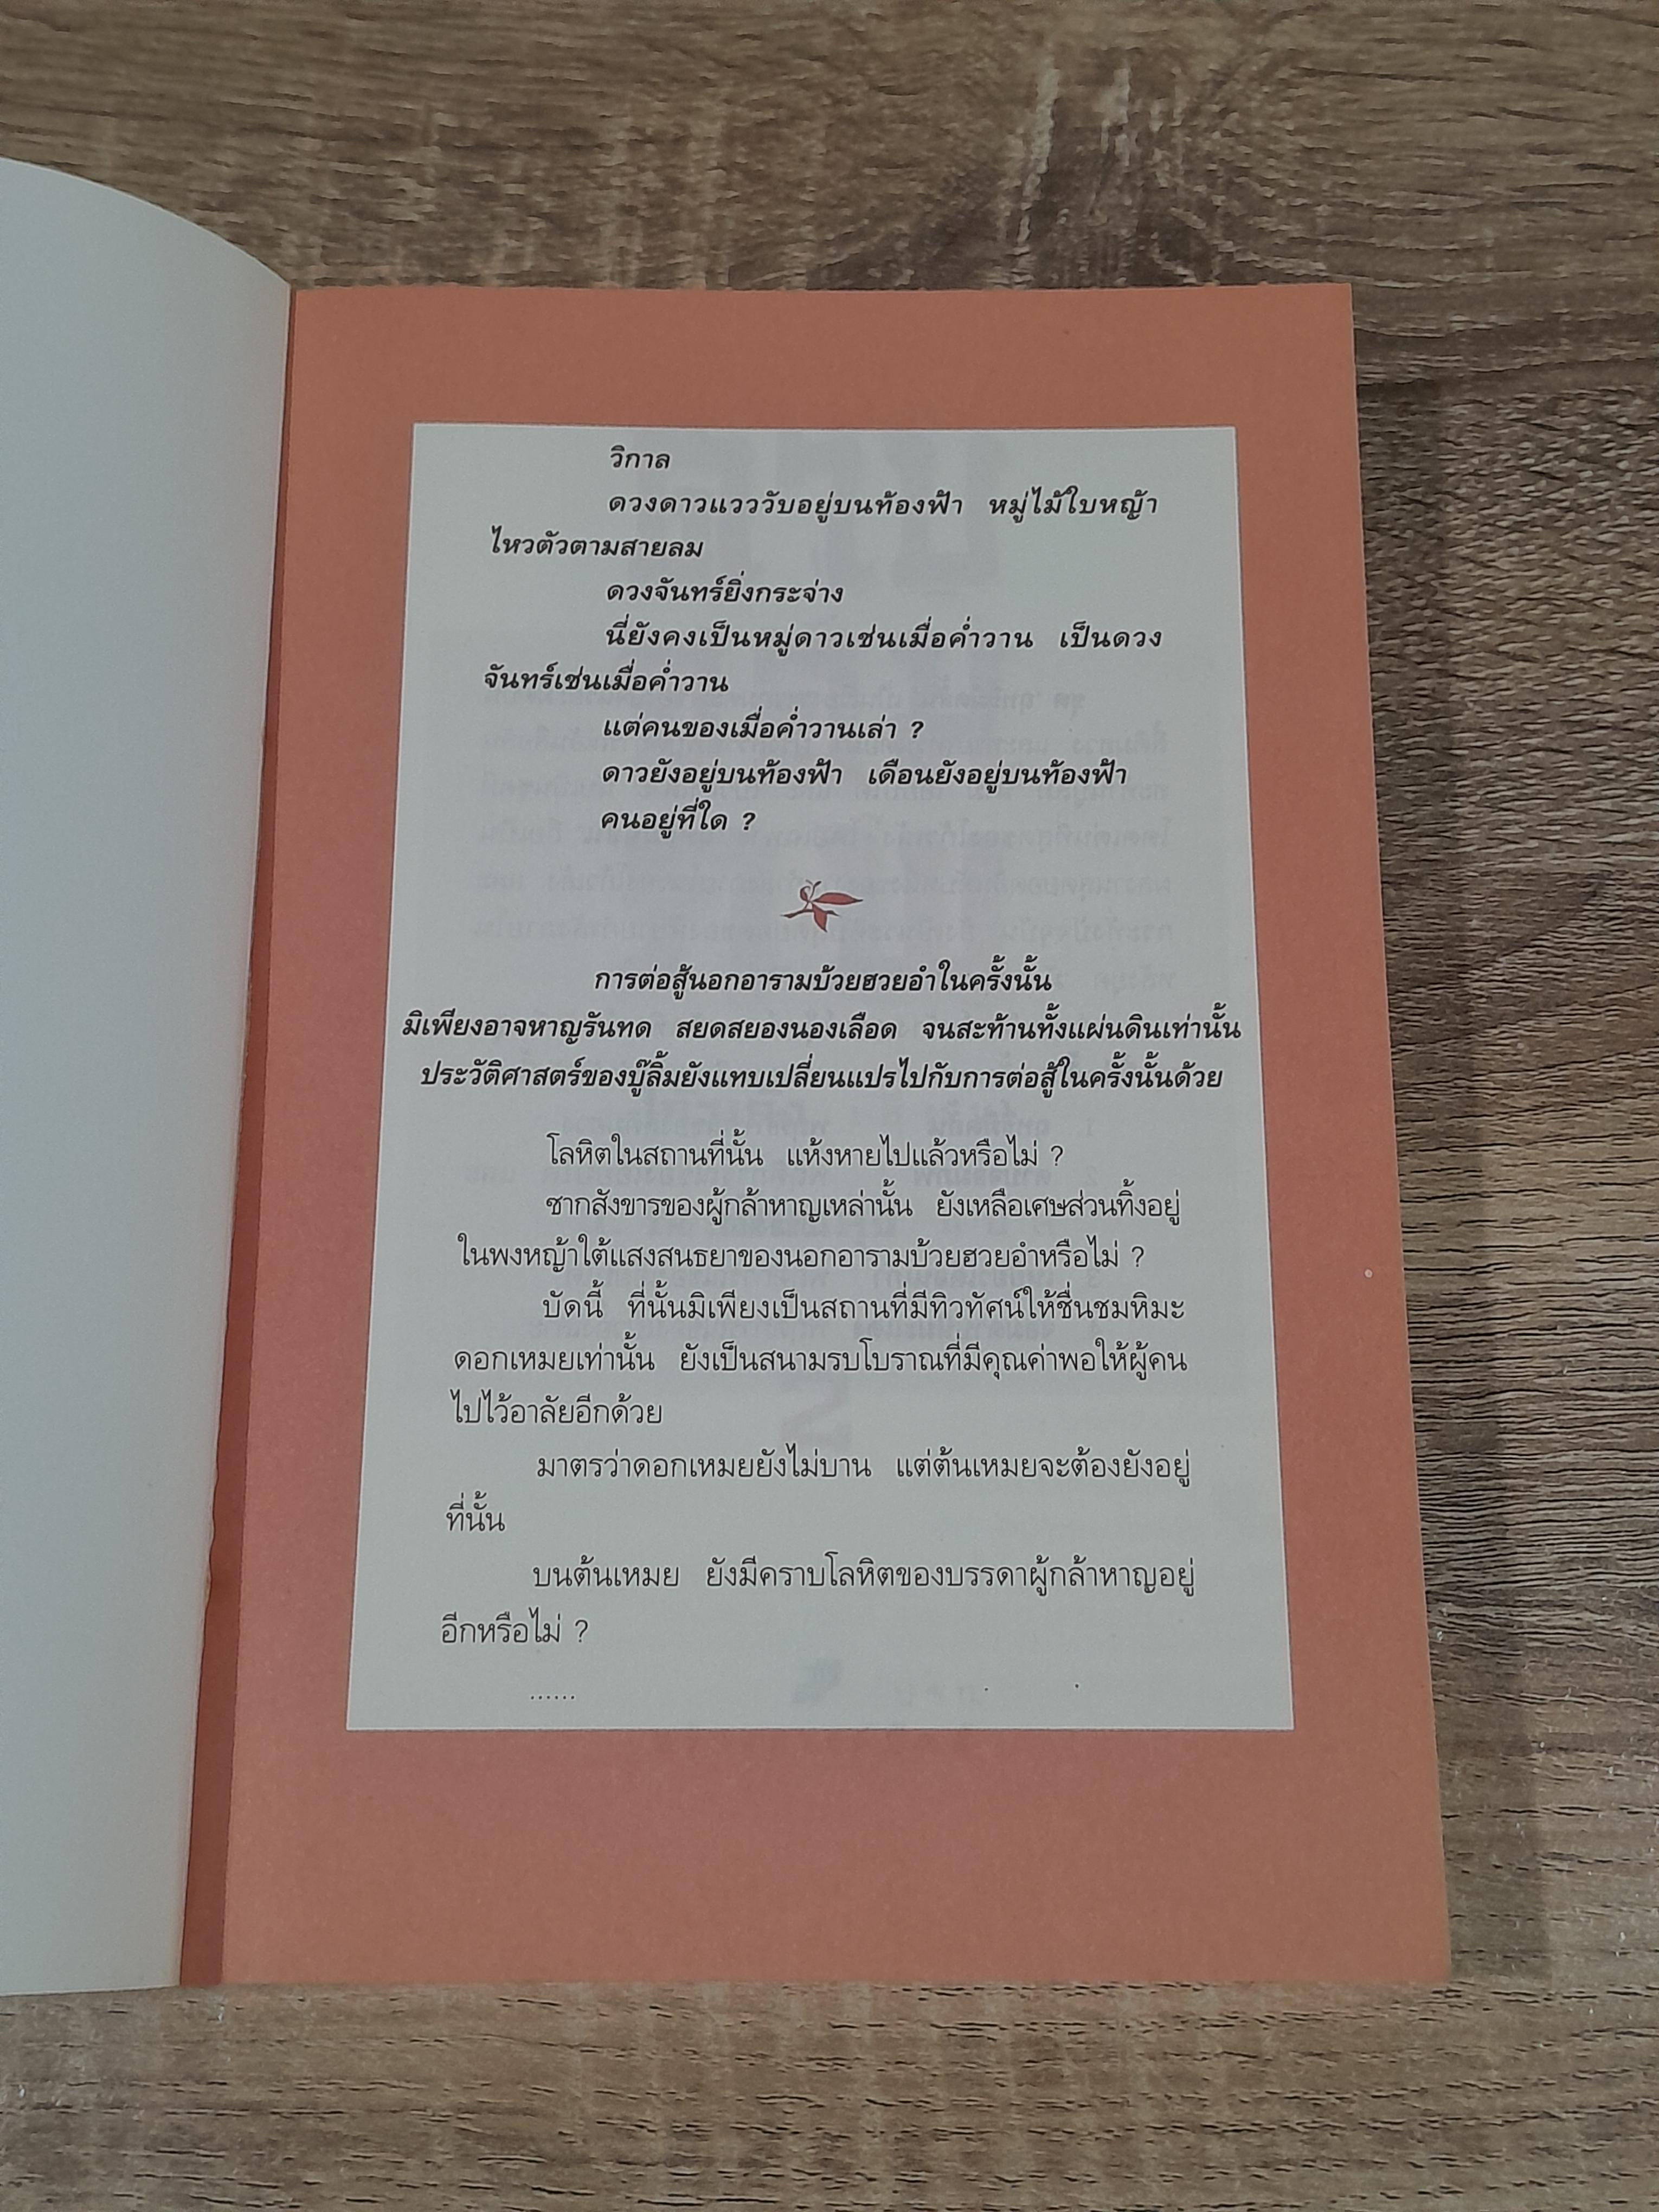 วิกาล
ดวงดาวแวววับอยู่บนท้องฟ้า หมู่ไม้ใบหญ้า
ไหวตัวตามสายลม
ดวงจันทร์ยิ่งกระจ่าง
นี่ยังคงเป็นหมู่ดาวเช่นเมื่อค่ำวาน เป็นดวง
จันทร์เช่นเมื่อค่ำวาน
แต่คนของเมื่อค่ำวานเล่า ?
ดาวยังอยู่บนท้องฟ้า เดือนยังอยู่บนท้องฟ้า
คนอยู่ที่ใด ?
การต่อสู้นอกอารามบ้วยฮวยอำในครั้งนั้น
มิเพียงอาจหาญรันทด สยดสยองนองเลือด จนสะท้านทั้งแผ่นดินเท่านั้น
ประวัติศาสตร์ของบู๊ลิ้มยังแทบเปลี่ยนแปรไปกับการต่อสู้ในครั้งนั้นด้วย
โลหิตในสถานที่นั้น แห้งหายไปแล้วหรือไม่ ?
ซากสังขารของผู้กล้าหาญเหล่านั้น ยังเหลือเศษส่วนทิ้งอยู่
ในพงหญ้าใต้แสงสนธยาของนอกอารามบ้วยฮวยอำหรือไม่ ?
บัดนี้ ที่นั้นมิเพียงเป็นสถานที่มีทิวทัศน์ให้ชื่นชมหิมะ
ดอกเหมยเท่านั้น ยังเป็นสนามรบโบราณที่มีคุณค่าพอให้ผู้คน
ไปไว้อาลัยอีกด้วย
มาตรว่าดอกเหมยยังไม่บาน แต่ต้นเหมยจะต้องยังอยู่
ที่นั้น
บนต้นเหมย ยังมีคราบโลหิตของบรรดาผู้กล้าหาญอยู่
อีกหรือไม่ ?
......